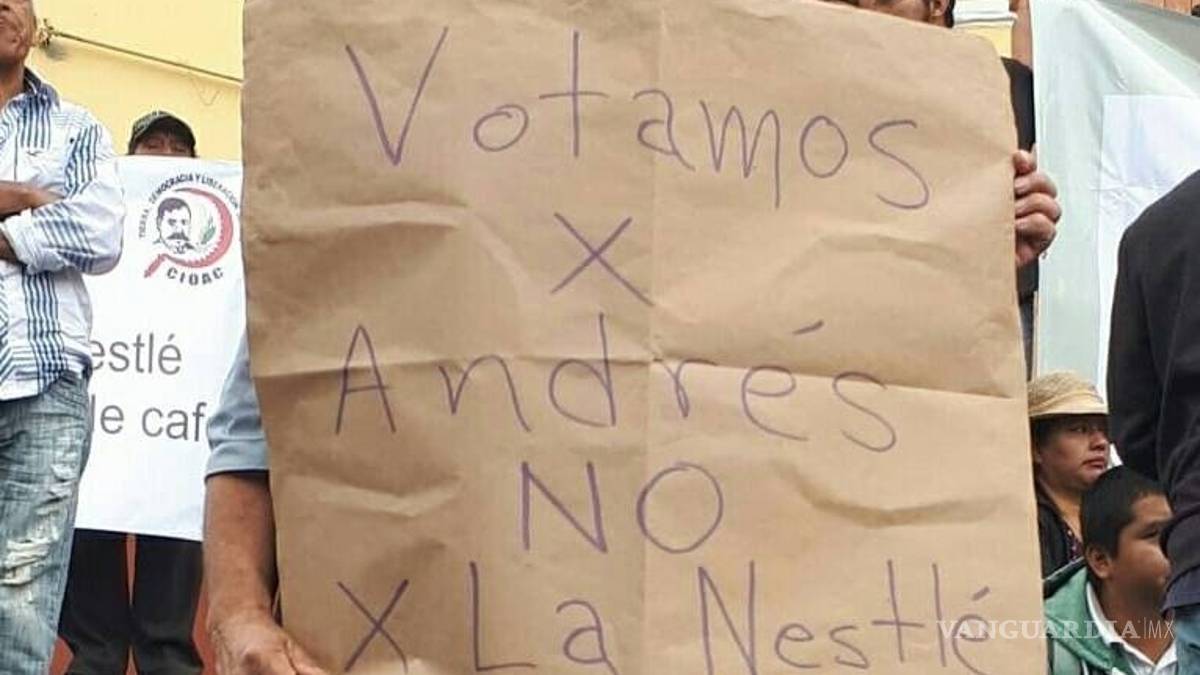 Votamos
X
Andrés
NO
X La Nestlé
TIERRA, DEMOCRACIA Y LIBERACION
CIOAC
estlé
le caf
VANGUARDIA|MX